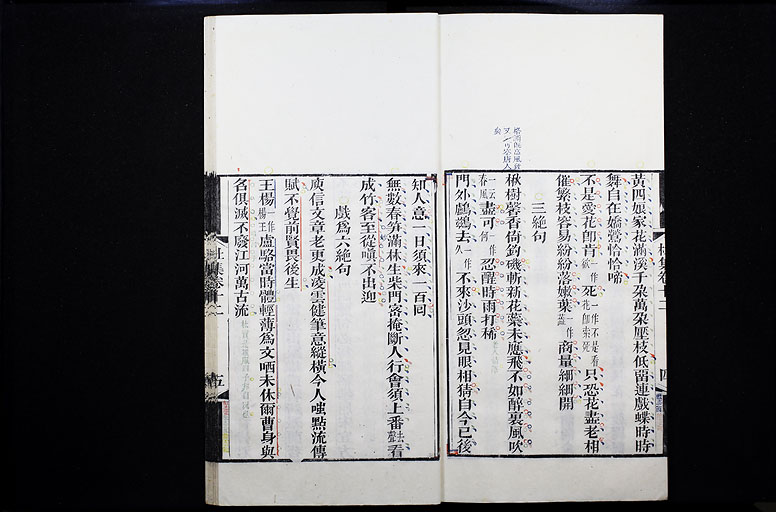 黃四娘家花滿溪千朶萬朶壓枝低留連戲蝶時時
舞自在嬌鶯恰恰啼
不是愛花卽肯一作欲死一作不是看花卽索死只恐花盡老相
催繁枝容易紛紛落嫩葉一作蕊商量細細開
三絶句
楸樹馨香倚釣磯斬新花蘂未應飛不如醉裏風吹
一云春風盡可一作何忍醒時雨打稀
門外鸕鷀去一作久不來沙頭忽見眼相猜自今已後
知人意一日須來一百回
無數春筍滿林生柴門密掩斷人行會須上番去聲看
成竹客至從嗔不出迎
戲爲六絶句
庾信文章老更成凌雲健筆意縱橫今人嗤點流傳
賦不覺前賢畏後生
王楊一作楊王盧駱當時體輕薄爲文哂未休爾曹身與
名俱滅不廢江河萬古流
杜集卷十二
四
杜集卷十二
五